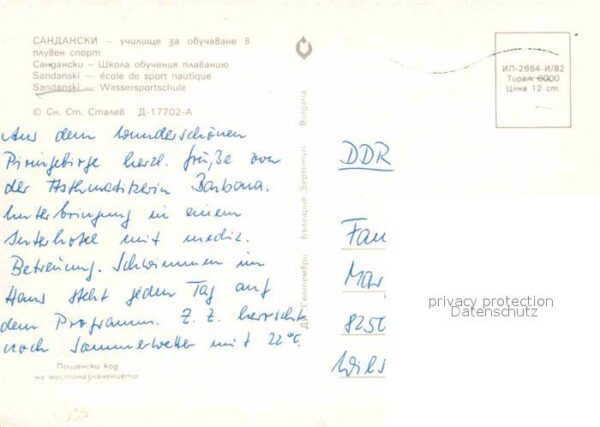 САНДАНСКИ – училище за обучаване в
плувен спорт
Сандански – Школа обучения плаванию
Sandanski – école de sport nautique
Sandanski – Wassersportschule
© Сн. Ст. Сталев Д-17702-А
Aus dem wunderschönen
Piringebirge herzl. Grüße von
der Asthmatikerin Barbara.
Unterbringung in einem
Interhotel mit mediz.
Betreuung. Schwimmen im
Haus steht jeden Tag auf
dem Programm. Z. Z. herrscht
noch Sommerwetter mit 22°C.
Пощенски код
на местоназначението
ДП Септември България Septemvri Bulgaria
ИП-2664-И/82
Тираж 6000
Цена 12 cm.
DDR
Fam
Mar
8250
Wils
privacy protection
Datenschutz